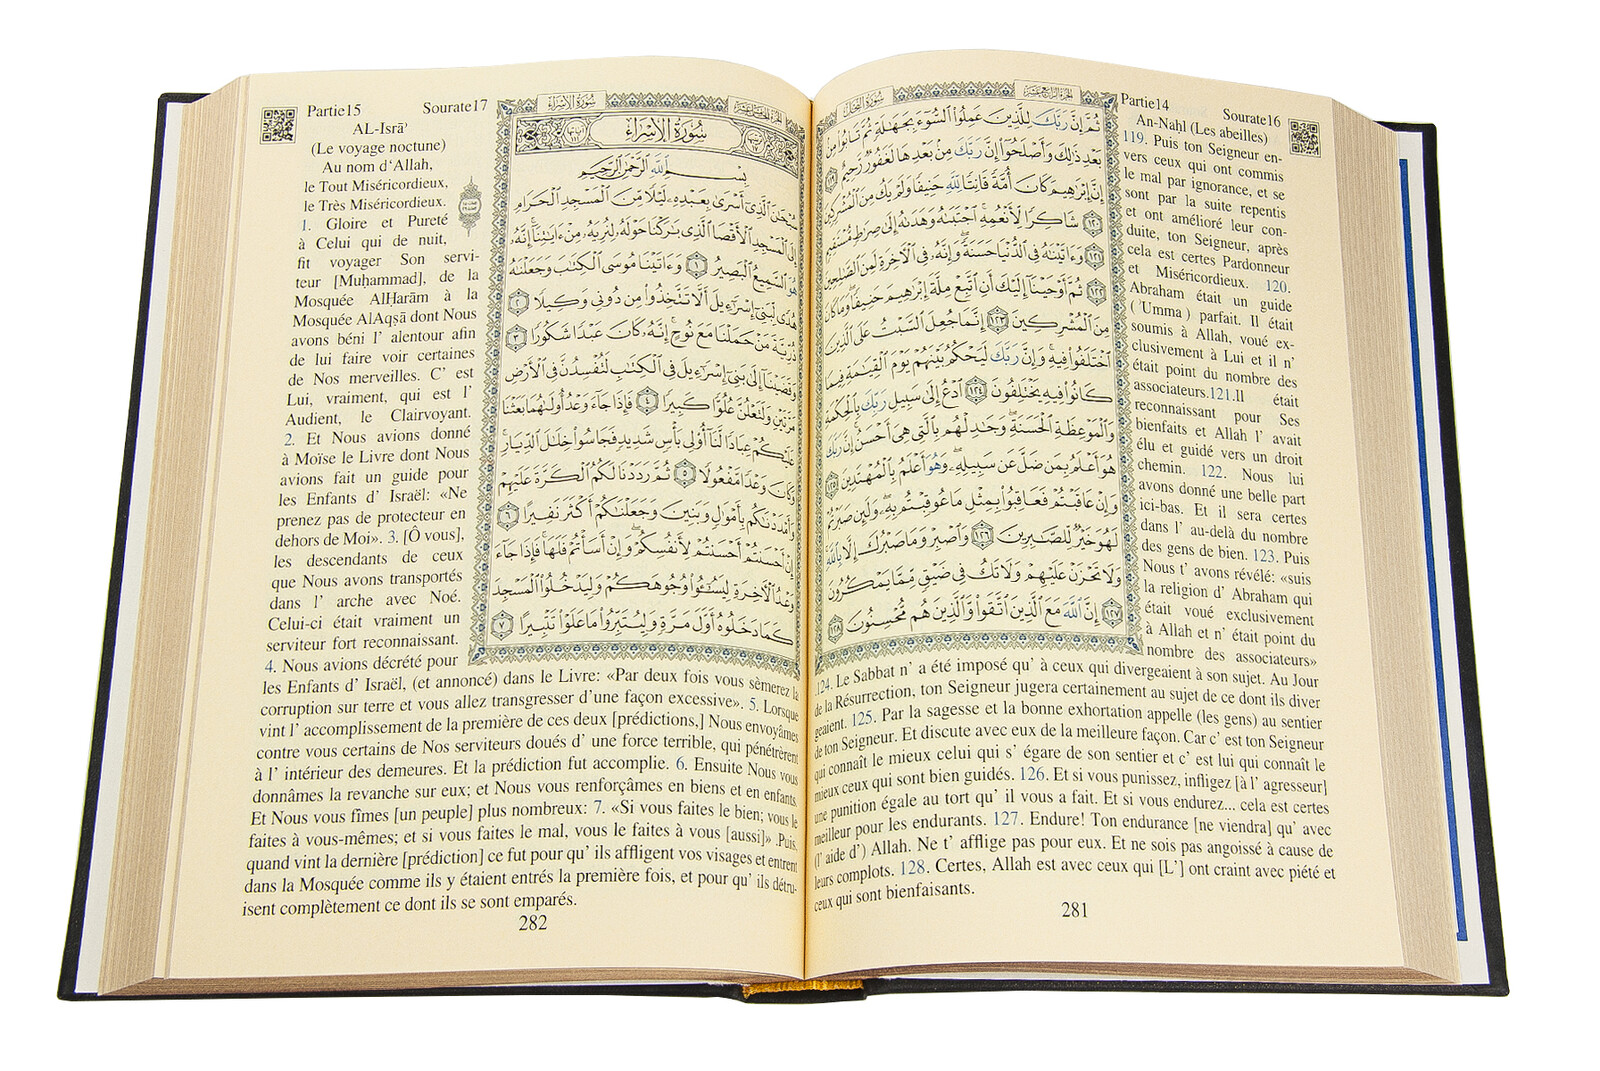 Partie14 Sourate16
An-Naḥl (Les abeilles)
119. Puis ton Seigneur en-
vers ceux qui ont commis
le mal par ignorance, et se
sont par la suite repentis
et ont amélioré leur con-
duite, ton Seigneur, après
cela est certes Pardonneur
et Miséricordieux. 120.
Abraham était un guide
(ʿUmma) parfait. Il était
soumis à Allah, voué ex-
clusivement à Lui et il n’
était point du nombre des
associateurs.121.Il était
reconnaissant pour Ses
bienfaits et Allah l’ avait
élu et guidé vers un droit
chemin. 122. Nous lui
avons donné une belle part
ici-bas. Et il sera certes
dans l’ au-delà du nombre
des gens de bien. 123. Puis
Nous t’ avons révélé: «suis
la religion d’ Abraham qui
était voué exclusivement
à Allah et n’ était point du
nombre des associateurs»
.124. Le Sabbat n’ a été imposé qu’ à ceux qui divergeaient à son sujet. Au Jour
de la Résurrection, ton Seigneur jugera certainement au sujet de ce dont ils diver
geaient. 125. Par la sagesse et la bonne exhortation appelle (les gens) au sentier
de ton Seigneur. Et discute avec eux de la meilleure façon. Car c’ est ton Seigneur
qui connaît le mieux celui qui s’ égare de son sentier et c’ est lui qui connaît le
mieux ceux qui sont bien guidés. 126. Et si vous punissez, infligez [à l’ agresseur]
une punition égale au tort qu’ il vous a fait. Et si vous endurez... cela est certes
meilleur pour les endurants. 127. Endure! Ton endurance [ne viendra] qu’ avec
(l’ aide d’) Allah. Ne t’ afflige pas pour eux. Et ne sois pas angoissé à cause de
leurs complots. 128. Certes, Allah est avec ceux qui [L’] ont craint avec piété et
ceux qui sont bienfaisants.
281
الجزء الرابع عشر سورة النحل
ثُمَّ إِنَّ رَبَّكَ لِلَّذِينَ عَمِلُوا السُّوءَ بِجَهَالَةٍ ثُمَّ تَابُوا مِنْ
بَعْدِ ذَلِكَ وَأَصْلَحُوا إِنَّ رَبَّكَ مِنْ بَعْدِهَا لَغَفُورٌ رَحِيمٌ ١١٩
إِنَّ إِبْرَاهِيمَ كَانَ أُمَّةً قَانِتًا لِلَّهِ حَنِيفًا وَلَمْ يَكُ مِنَ الْمُشْرِكِينَ
١٢٠ شَاكِرًا لِأَنْعُمِهِ اجْتَبَاهُ وَهَدَاهُ إِلَى صِرَاطٍ مُسْتَقِيمٍ
١٢١ وَآتَيْنَاهُ فِي الدُّنْيَا حَسَنَةً وَإِنَّهُ فِي الْآخِرَةِ لَمِنَ الصَّالِحِينَ
١٢٢ ثُمَّ أَوْحَيْنَا إِلَيْكَ أَنِ اتَّبِعْ مِلَّةَ إِبْرَاهِيمَ حَنِيفًا وَمَا كَانَ
مِنَ الْمُشْرِكِينَ ١٢٣ إِنَّمَا جُعِلَ السَّبْتُ عَلَى الَّذِينَ
اخْتَلَفُوا فِيهِ وَإِنَّ رَبَّكَ لَيَحْكُمُ بَيْنَهُمْ يَوْمَ الْقِيَامَةِ فِيمَا
كَانُوا فِيهِ يَخْتَلِفُونَ ١٢٤ ادْعُ إِلَى سَبِيلِ رَبِّكَ بِالْحِكْمَةِ
وَالْمَوْعِظَةِ الْحَسَنَةِ وَجَادِلْهُمْ بِالَّتِي هِيَ أَحْسَنُ إِنَّ رَبَّكَ
هُوَ أَعْلَمُ بِمَنْ ضَلَّ عَنْ سَبِيلِهِ وَهُوَ أَعْلَمُ بِالْمُهْتَدِينَ ١٢٥
وَإِنْ عَاقَبْتُمْ فَعَاقِبُوا بِمِثْلِ مَا عُوقِبْتُمْ بِهِ وَلَئِنْ صَبَرْتُمْ
لَهُوَ خَيْرٌ لِلصَّابِرِينَ ١٢٦ وَاصْبِرْ وَمَا صَبْرُكَ إِلَّا بِاللَّهِ
وَلَا تَحْزَنْ عَلَيْهِمْ وَلَا تَكُ فِي ضَيْقٍ مِمَّا يَمْكُرُونَ
١٢٧ إِنَّ اللَّهَ مَعَ الَّذِينَ اتَّقَوْا وَالَّذِينَ هُمْ مُحْسِنُونَ ١٢٨
الجزء الخامس عشر سورة الإسراء
سُورَةُ الْإِسْرَاءِ
بِسْمِ اللَّهِ الرَّحْمَنِ الرَّحِيمِ
سُبْحَانَ الَّذِي أَسْرَى بِعَبْدِهِ لَيْلًا مِنَ الْمَسْجِدِ الْحَرَامِ
إِلَى الْمَسْجِدِ الْأَقْصَا الَّذِي بَارَكْنَا حَوْلَهُ لِنُرِيَهُ مِنْ آيَاتِنَا إِنَّهُ
هُوَ السَّمِيعُ الْبَصِيرُ ١ وَآتَيْنَا مُوسَى الْكِتَابَ وَجَعَلْنَاهُ
هُدًى لِبَنِي إِسْرَائِيلَ أَلَّا تَتَّخِذُوا مِنْ دُونِي وَكِيلًا ٢
ذُرِّيَّةَ مَنْ حَمَلْنَا مَعَ نُوحٍ إِنَّهُ كَانَ عَبْدًا شَكُورًا ٣
وَقَضَيْنَا إِلَى بَنِي إِسْرَائِيلَ فِي الْكِتَابِ لَتُفْسِدُنَّ فِي الْأَرْضِ
مَرَّتَيْنِ وَلَتَعْلُنَّ عُلُوًّا كَبِيرًا ٤ فَإِذَا جَاءَ وَعْدُ أُولَاهُمَا بَعَثْنَا
عَلَيْكُمْ عِبَادًا لَنَا أُولِي بَأْسٍ شَدِيدٍ فَجَاسُوا خِلَالَ الدِّيَارِ
وَكَانَ وَعْدًا مَفْعُولًا ٥ ثُمَّ رَدَدْنَا لَكُمُ الْكَرَّةَ عَلَيْهِمْ
وَأَمْدَدْنَاكُمْ بِأَمْوَالٍ وَبَنِينَ وَجَعَلْنَاكُمْ أَكْثَرَ نَفِيرًا ٦
إِنْ أَحْسَنْتُمْ أَحْسَنْتُمْ لِأَنْفُسِكُمْ وَإِنْ أَسَأْتُمْ فَلَهَا فَإِذَا جَاءَ
وَعْدُ الْآخِرَةِ لِيَسُوءُوا وُجُوهَكُمْ وَلِيَدْخُلُوا الْمَسْجِدَ
كَمَا دَخَلُوهُ أَوَّلَ مَرَّةٍ وَلِيُتَبِّرُوا مَا عَلَوْا تَتْبِيرًا ٧
Partie15 Sourate17
AL-Isrāʾ
(Le voyage noctune)
Au nom d‘Allah,
le Tout Miséricordieux,
le Très Miséricordieux.
1. Gloire et Pureté
à Celui qui de nuit,
fit voyager Son servi-
teur [Muḥammad], de la
Mosquée AlḤarām à la
Mosquée AlAqsā dont Nous
avons béni l’ alentour afin
de lui faire voir certaines
de Nos merveilles. C’ est
Lui, vraiment, qui est l’
Audient, le Clairvoyant.
2. Et Nous avions donné
à Moïse le Livre dont Nous
avions fait un guide pour
les Enfants d’ Israël: «Ne
prenez pas de protecteur en
dehors de Moi». 3. [Ô vous],
les descendants de ceux
que Nous avons transportés
dans l’ arche avec Noé.
Celui-ci était vraiment un
serviteur fort reconnaissant.
4. Nous avions décrété pour
les Enfants d’ Israël, (et annoncé) dans le Livre: «Par deux fois vous sèmerez la
corruption sur terre et vous allez transgresser d’une façon excessive». 5. Lorsque
vint l’ accomplissement de la première de ces deux [prédictions,] Nous envoyâmes
contre vous certains de Nos serviteurs doués d’ une force terrible, qui pénétrèrent
à l’ intérieur des demeures. Et la prédiction fut accomplie. 6. Ensuite Nous vous
donnâmes la revanche sur eux; et Nous vous renforçâmes en biens et en enfants.
Et Nous vous fîmes [un peuple] plus nombreux: 7. «Si vous faites le bien; vous le
faites à vous-mêmes; et si vous faites le mal, vous le faites à vous [aussi]» .Puis,
quand vint la dernière [prédiction] ce fut pour qu’ ils affligent vos visages et entrent
dans la Mosquée comme ils y étaient entrés la première fois, et pour qu’ ils détru-
isent complètement ce dont ils se sont emparés.
282